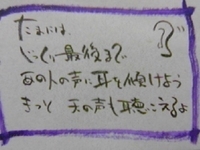 たまには
じっくり最後まで
あの人の声に耳を傾けよう
きっと天の声も聴こえるよ